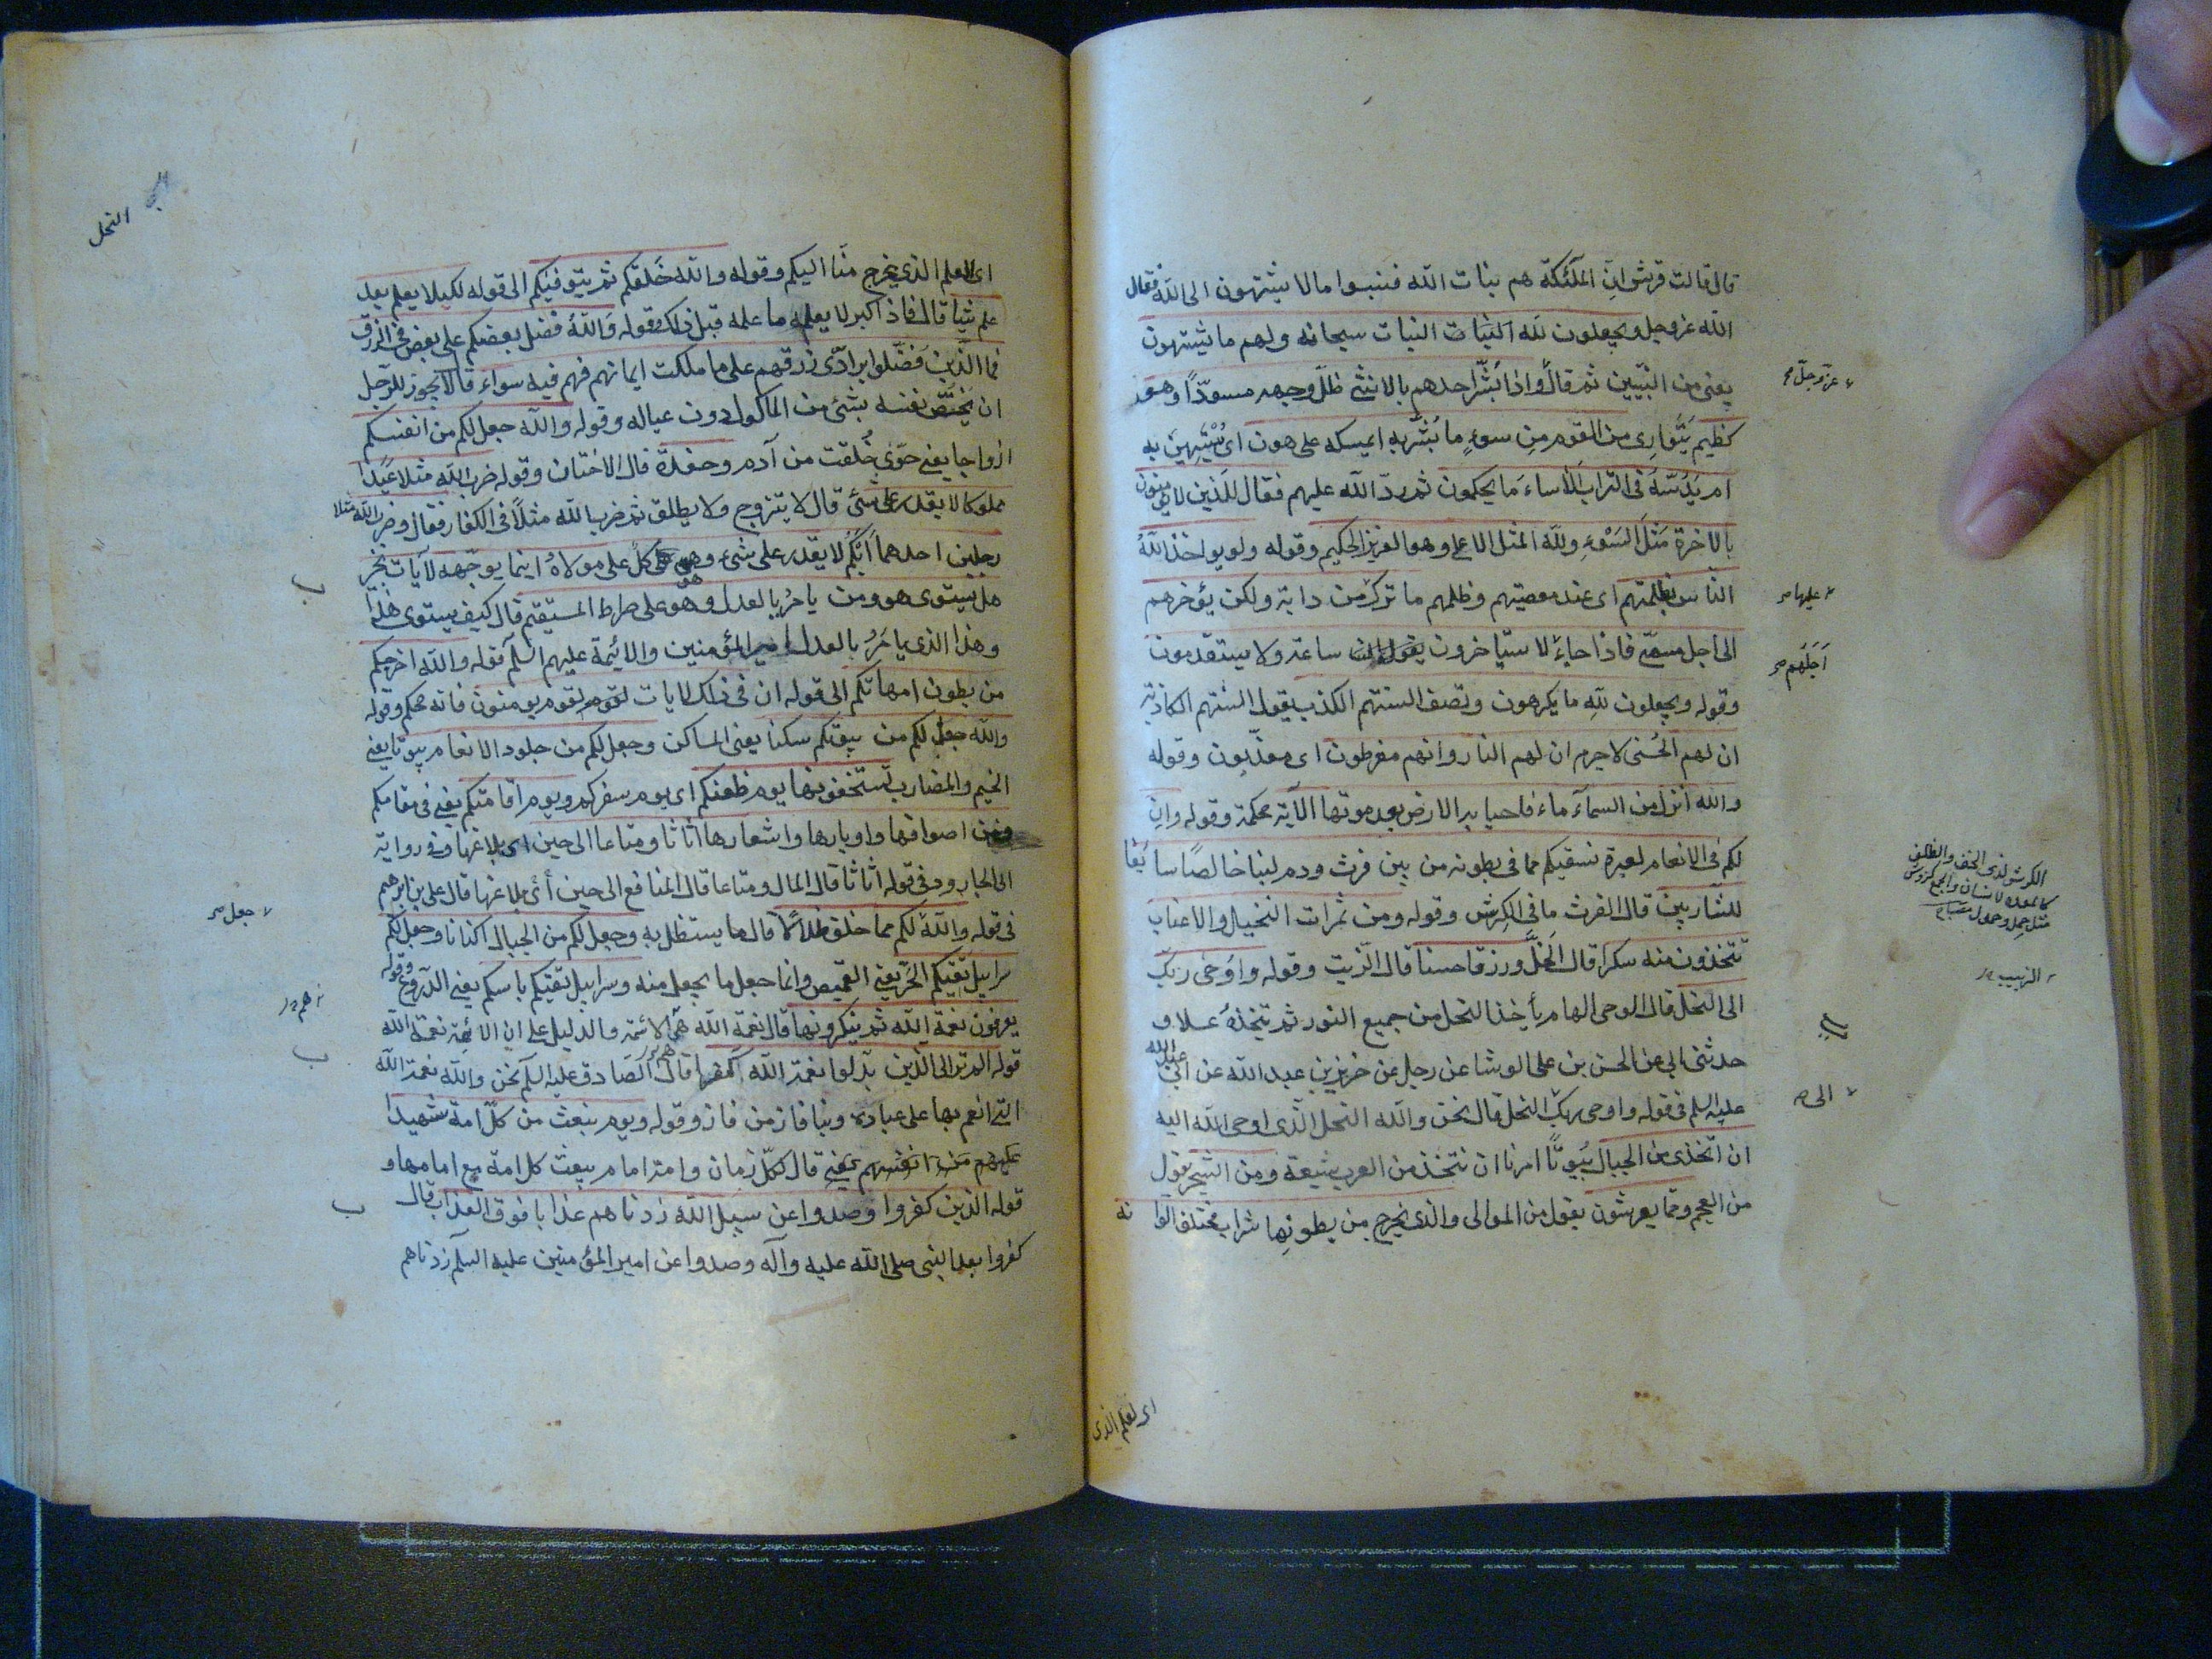 قال قالت قريش ان الملئكة هم بنات الله فنسبوا ما لا يشتهون الى الله فقال
الله عز وجل ويجعلون لله البنات البنات سبحانه ولهم ما يشتهون
يعنى من البنين ثم قال واذا بشر احدهم بالانثى ظل وجهه مسودا وهو
عز وجل
كظيم يتوارى من القوم من سوء ما بشر به ايمسكه على هون اى يستهين به
ام يدسه فى التراب الا ساء ما يحكمون ثم رد الله عليهم فقال للذين لا يؤمنون
بالاخرة مثل السوء ولله المثل الاعلى وهو العزيز الحكيم وقوله ولو يؤاخذ الله
الناس بظلمهم اى عند معصيتهم وظلمهم ما ترك من دابة ولكن يؤخرهم
عليها
الى اجل مسمى فاذا جاء لا يستاخرون ساعة ولا يستقدمون
اجلهم
وقوله ويجعلون لله ما يكرهون وتصف السنتهم الكذب يقول السنتهم الكاذبة
ان لهم الحسنى لا جرم ان لهم النار وانهم مفرطون اى معذبون وقوله
والله انزل من السماء ماء فاحيا به الارض بعد موتها الآية محكمة وقوله وان
لكم فى الانعام لعبرة نسقيكم مما فى بطونه من بين فرث ودم لبنا خالصا سايغا
الكرش لذى الخف والظلف
كالمعدة للانسان والجمع كروش
مثل حمل وحمول مصباح
للشاربين قال الفرث ما فى الكرش وقوله ومن ثمرات النخيل والاعناب
تتخذون منه سكرا قال الخل ورزقا حسنا قال الزيت وقوله واوحى ربك
الزبيب
الى النحل قال الوحى الهام يأخذ النحل من جميع النور ثم يتخذه عسلا و
حدثنى ابى عن الحسن بن على الوشا عن رجل عن حريز بن عبد الله عن ابى عبد الله
عليه السلم فى قوله واوحى ربك النحل قال نحن والله النحل الذى اوحى الله اليه
الى
ان اتخذى من الجبال بيوتا امرنا ان نتخذ من العرب شيعة ومن الشجر يقول
من العجم ومما يعرشون يقول من الموالى والذى يخرج من بطونها شراب مختلف الوانه
اى العلم الذى
النحل
اى العلم الذى يخرج منا اليكم وقوله والله خلقكم ثم يتوفيكم الى قوله لكيلا يعلم بعد
علم شيأ قال فاذا كبر لا يعلم ما علمه قبل ذلك وقوله والله فضل بعضكم على بعض فى الرزق
فما الذين فضلوا برادى رزقهم على ما ملكت ايمانهم فهم فيه سواء قال لا يجوز للرجل
ان يختص نفسه بشئ من الماكول دون عياله وقوله والله جعل لكم من انفسكم
ازواجا يعنى حوى خلقت من آدم وحفدة قال الاختان وقوله ضرب الله مثلا عبدا
مملوكا لا يقدر على شئ قال لا يتزوج ولا يطلق ثم ضرب الله مثلا فى الكفار فقال وضرب الله مثلا
رجلين احدهما ابكم لا يقدر على شىء وهو كل على مولاه اينما يوجهه لا يأت بخير
هل يستوى هو ومن يامر بالعدل وهو على صراط المستقيم قال كيف يستوى هذا
وهذا الذى يامر بالعدل امير المؤمنين والائمة عليهم السلم قوله والله اخرجكم
من بطون امهاتكم الى قوله ان فى ذلك لايات لقوم يؤمنون فانه محكم وقوله
والله جعل لكم من بيوتكم سكنا يعنى المساكن وجعل لكم من جلود الانعام بيوتا يعنى
الخيم والمضارب تستخفونها يوم ظعنكم اى يوم سفركم ويوم اقامتكم يعنى فى مقامكم
ومن اصوافها واوبارها واشعارها اثاثا ومتاعا الى حين اى بلاغها وفى رواية
ابى الجارود فى قوله اثاثا قال المال ومتاعا قال المنافع الى حين أى بلاغها قال على بن ابرهيم
فى قوله والله لكم مما خلق ظلالا قال ما يستظل به وجعل لكم من الجبال اكنانا وجعل لكم
جعل
سرابيل تقيكم الحر يعنى القميص وانما جعل ما يجعل منه وسرابيل تقيكم باسكم يعنى الدروع وقوله
يعرفون نعمة الله ثم ينكرونها قال نعمة الله هى الائمة والدليل على ان الائمة نعمة الله
هم
قوله الم تر الى الذين بدلوا نعمة الله كفرا قال الصادق عليه السلم نحن والله نعمة الله
التى انعم بها على عباده وبنا فاز من فاز وقوله ويوم نبعث من كل امة شهيدا
عليهم من انفسهم يعنى قال لكل زمان وامة امام يبعث كل امة مع امامها و
قوله الذين كفروا وصدوا عن سبيل الله زدناهم عذابا فوق العذاب قال
كفروا بعد النبى صلى الله عليه وآله وصدوا عن امير المؤمنين عليه السلم زدناهم